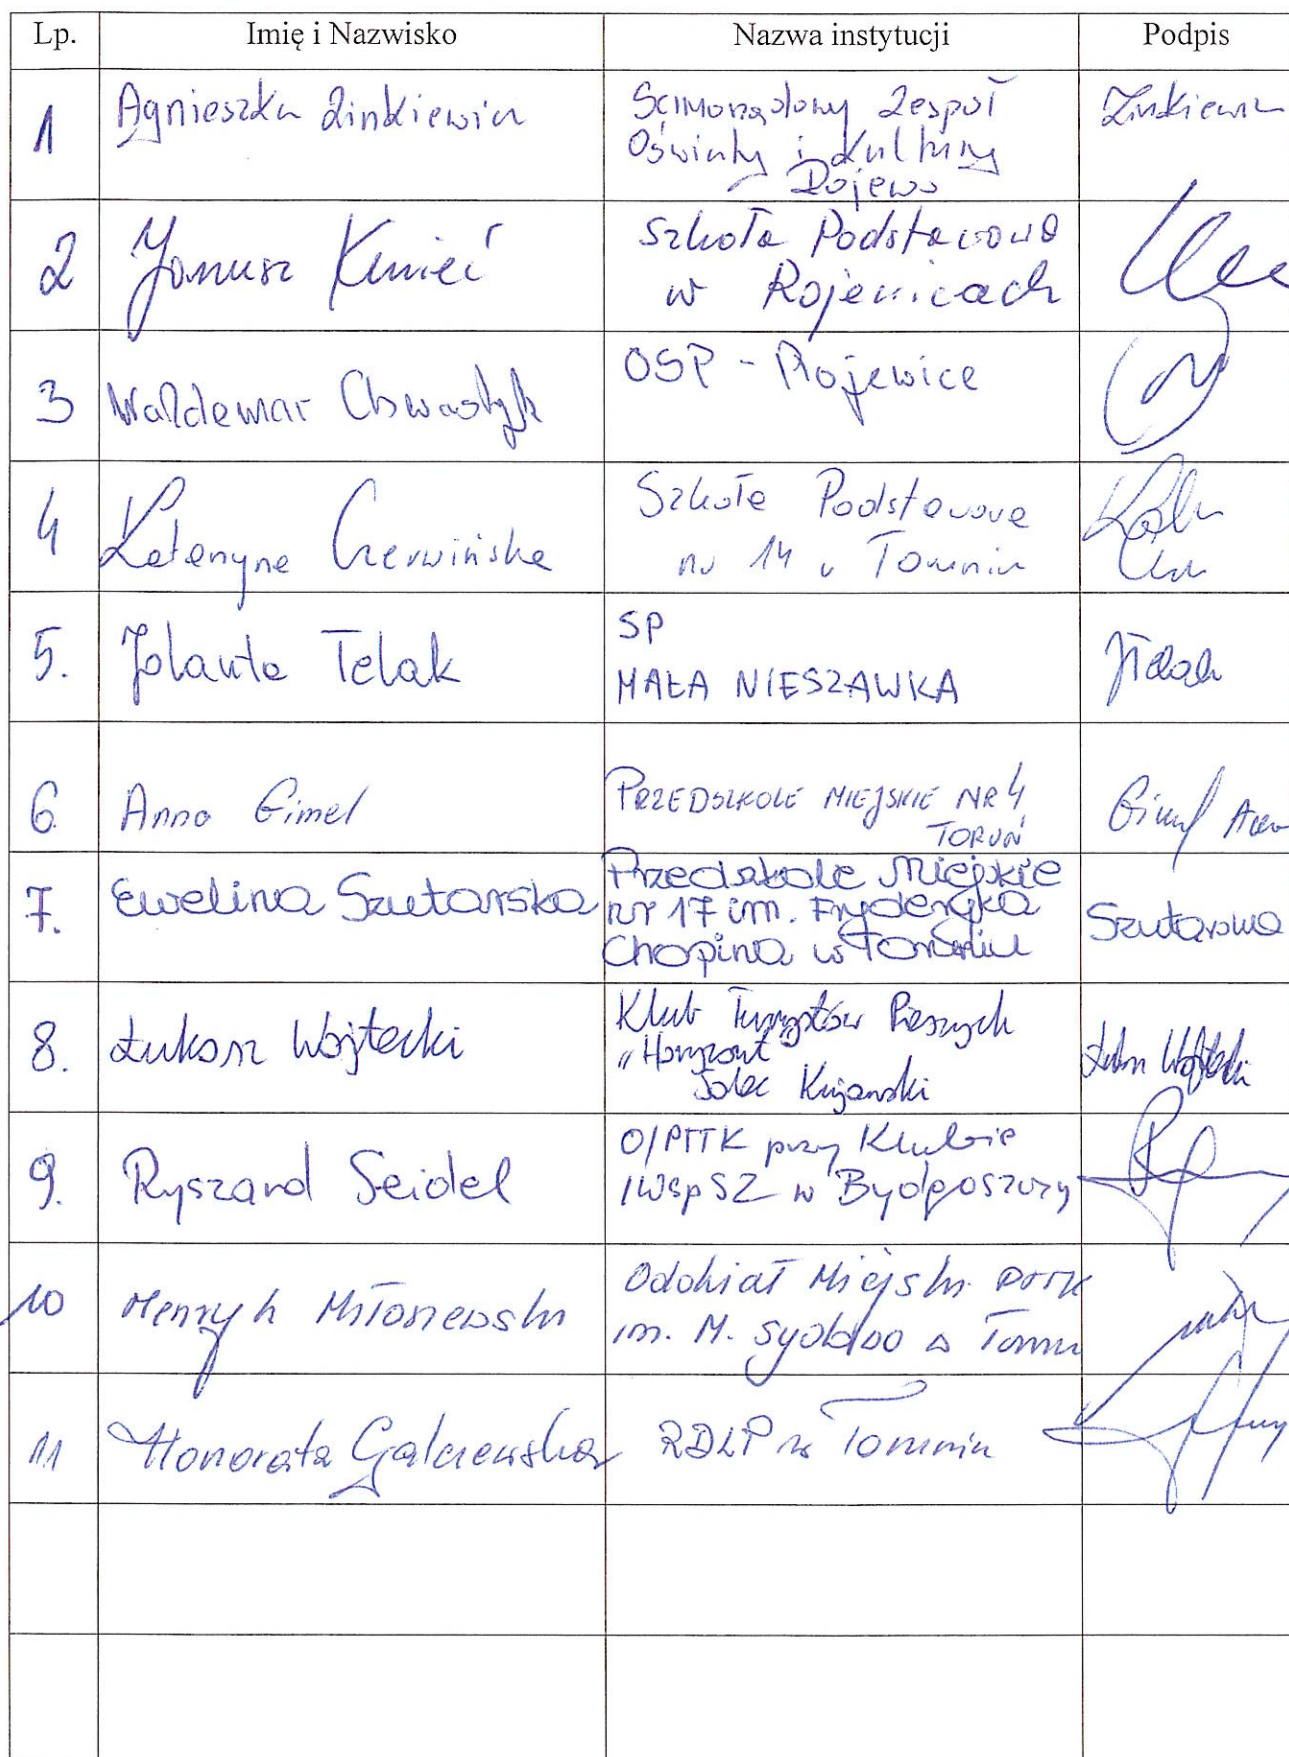 Lp. Imię i Nazwisko Nazwa instytucji Podpis
1 Agnieszka Zinkiewicz Samorządowy Zespół Zinkiewicz
Oświaty i Kultury
Rojewo
2 Janusz Kmieć Szkoła Podstawowa
w Rojewicach
3 Waldemar Chwastyk OSP - Rojewice
4 Katarzyna Czerwińska Szkoła Podstawowa
nr 14 w Toruniu
5. Jolanta Telak SP JTelak
MAŁA NIESZAWKA
6. Anna Gimel PRZEDSZKOLE MIEJSKIE NR 4 Gimel Anna
TORUŃ
7. Ewelina Szutarska Przedszkole Miejskie Szutarska
nr 17 im. Fryderyka
Chopina w Toruniu
8. Łukasz Wojtecki Klub Turystów Pieszych
"Horyzont"
Solec Kujawski
9. Ryszard Seidel O/PTTK przy Klubie
IWspSZ w Bydgoszczy
10 Henryk Miłoszewski Oddział Miejski PTTK
im. M. Sydow w Toruniu
11 Honorata Galczewska RDLP w Toruniu